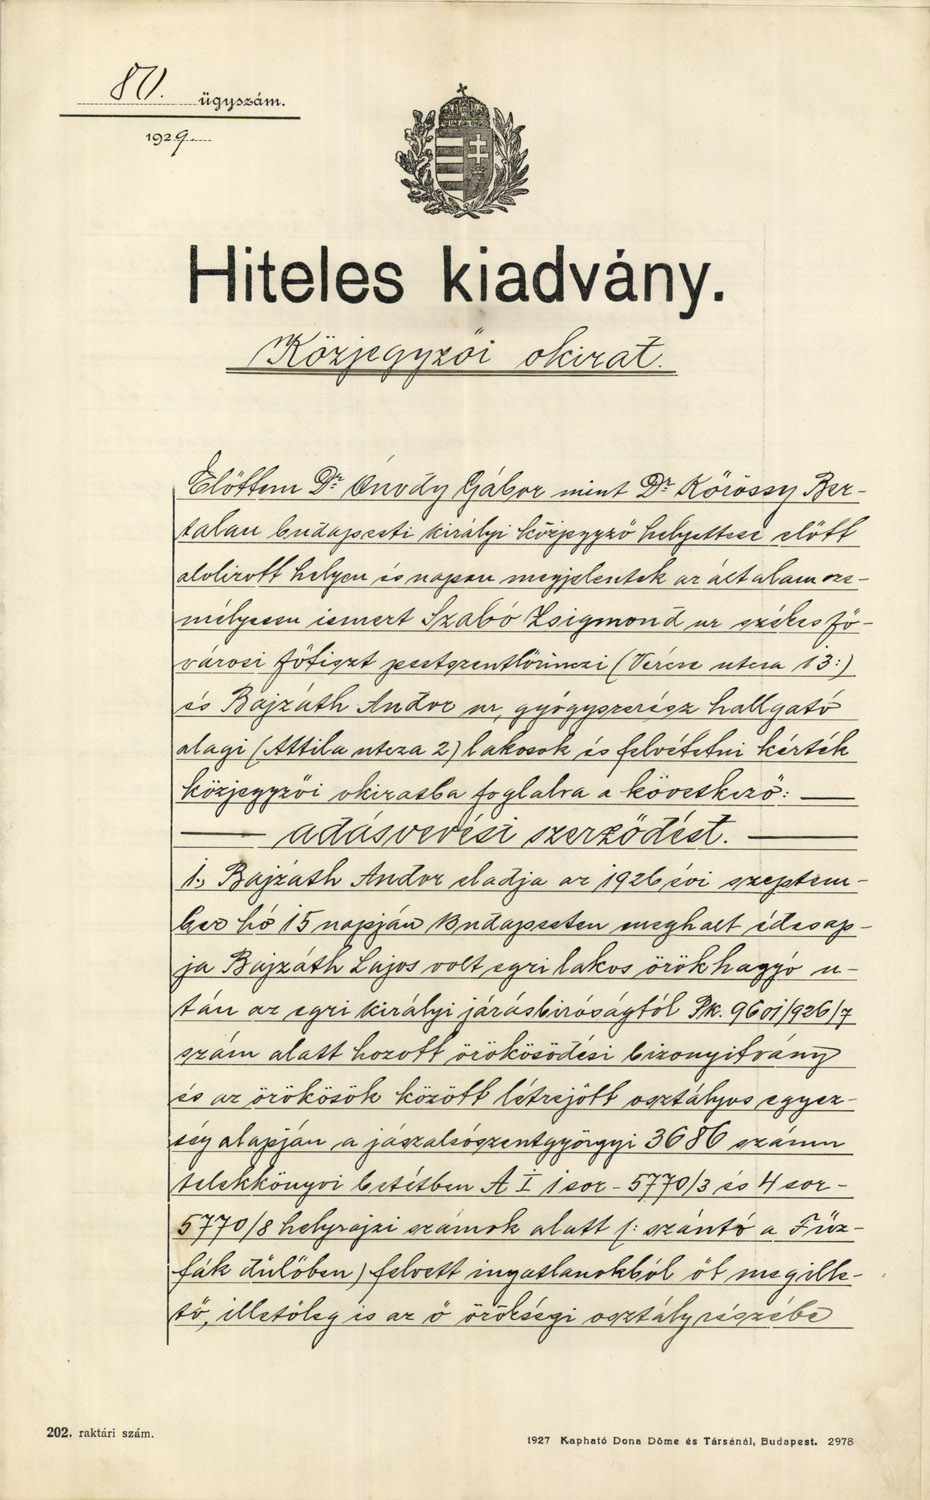 80. ügyszám.
1929
Hiteles kiadvány.
Közjegyzői okirat.
Előttem Dr Ónody Gábor mint Dr Kőrössy Ber-
talan budapesti királyi közjegyző helyettese előtt
alolirott helyen és napon megjelentek az általam sze-
mélyesen ismert Szabó Zsigmond ur székesfő-
városi főtiszt pestszentlőrinczi (Vércse utcza 13:)
és Bajzáth Andor ur, gyógyszerész hallgató
alagi (Attila utcza 2) lakosok és felvétetni kérték
közjegyzői okiratba foglalva a következő:
adásvevési szerződést.
1., Bajzáth Andor eladja az 1926 évi szeptem-
ber hó 15 napján Budapesten meghalt édesap-
ja Bajzáth Lajos volt egri lakos örökhagyó u-
tán az egri királyi járásbiróságtól Pk. 9601/926/7
szám alatt hozott örökösödési bizonyitvány
és az örökösök között létrejött osztályos egyez-
ség alapján a jászalsószentgyörgyi 3686 számu
telekkönyvi betétben A I 1 sor - 5770/3 és 4 sor-
5770/8 helyrajzi számok alatt (: szántó a Füz-
fák dülőben) felvett ingatlanokból őt megille-
tő, illetőleg is az ő örökségi osztályrészébe
202. raktári szám.
1927 Kapható Dona Döme és Társánál, Budapest. 2978